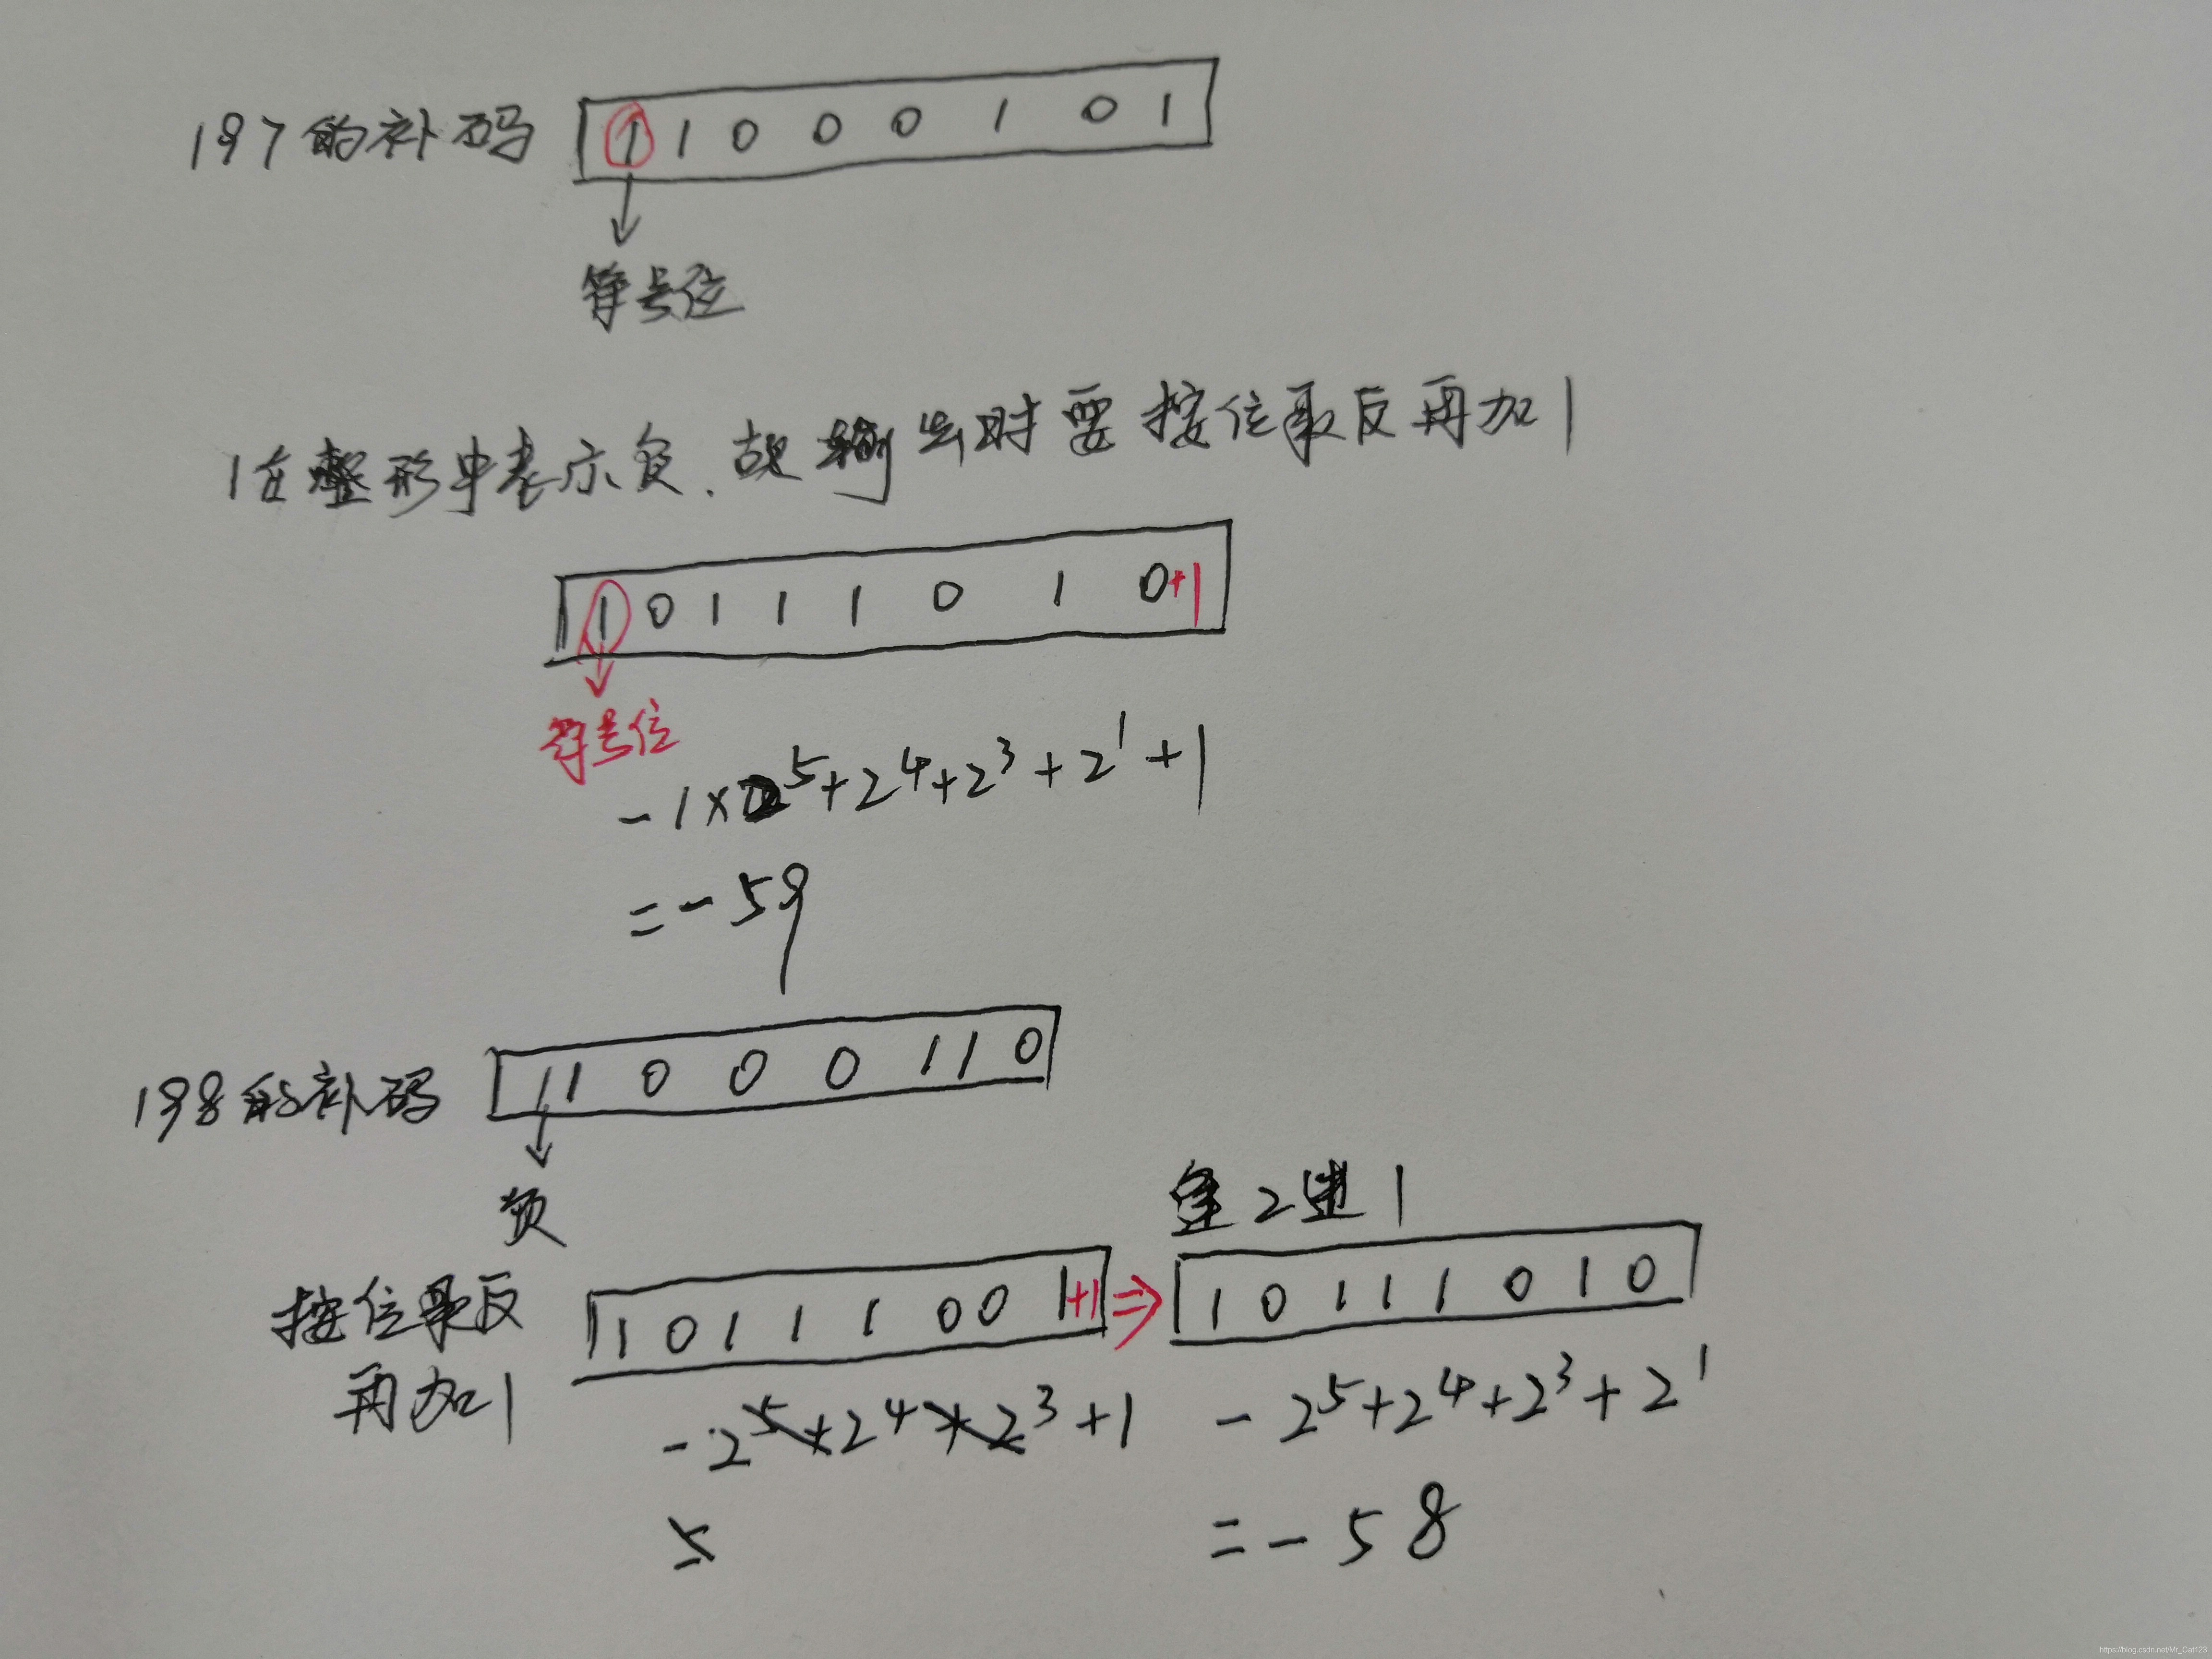 197的补码 1 1 0 0 0 1 0 1
符号位
1在整形中表示负.故输出时要按位取反再加1
1 0 1 1 1 0 1 0+1
符号位
-1×2⁵+2⁴+2³+2¹+1
=-59
198的补码 1 1 0 0 0 1 1 0
负
逢2进1
按位取反 1 0 1 1 1 0 0 1+1 ⇒ 1 0 1 1 1 0 1 0
再加1
-2⁵+2⁴+2³+1 -2⁵+2⁴+2³+2¹
=-58
https://blog.csdn.net/Mr_Cat123